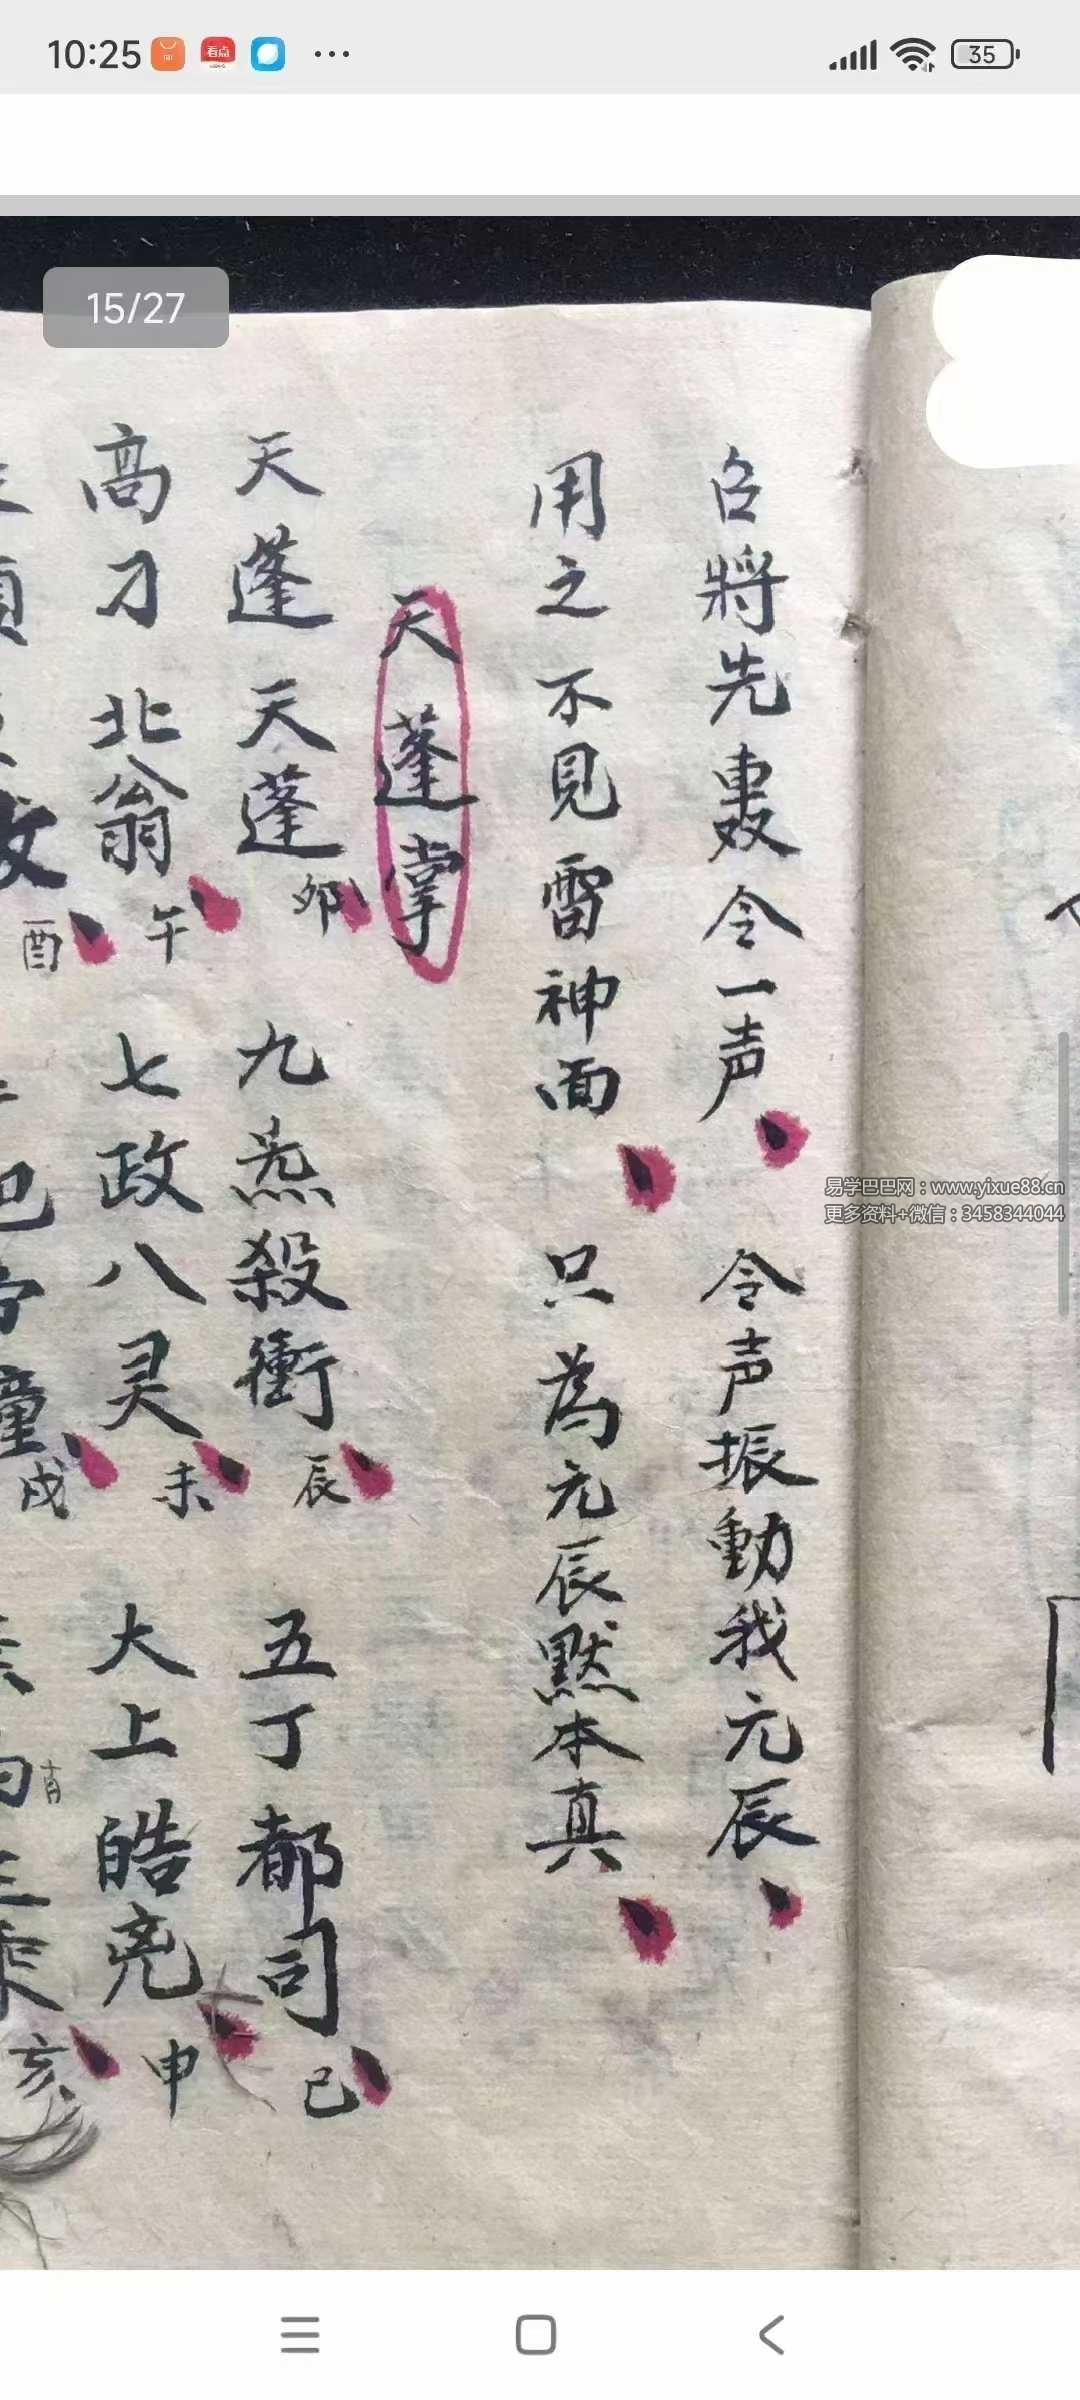 10:25
看点
35
15/27
召將先轰令一声 令声振動我元辰
用之不見雷神面 只為元辰黙本真
天蓬掌
天蓬天蓬 卯 九炁殺衝 辰 五丁都司 巳
高刁北翁 午 七政八灵 未 大上皓亮 申
酉 戌 亥
易学巴巴网：www.yixue88.cn
更多资料+微信：3458344044